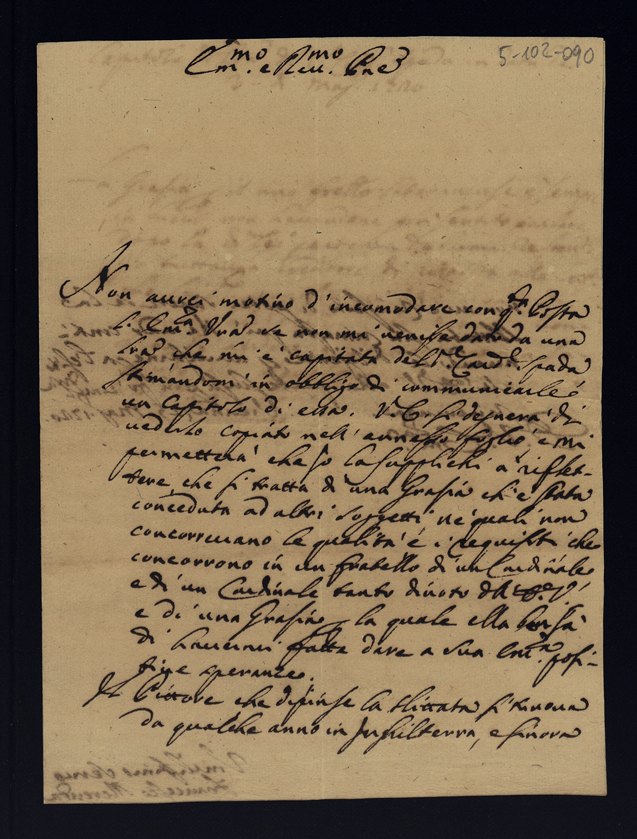 5-102-090
Em.mo e Reu.mo Pne
Non aurei motiuo d'incomodare con q.ta Posta
l'Em.za Vra se non mi uenisse dato da una
lra che mi è capitata del S.r Card.l Spada
stimandomi in obbligo di communicarle
un Capitolo di essa. V. E. si degnerà di
uederlo copiato nell'annesso foglio, e mi
permetterà che io la supplichi a riflet-
tere che si tratta di una Grazia ch'è stata
conceduta ad altri soggetti ne quali non
concorreuano le qualità e i requisiti che
concorrono in un fratello di un Cardinale
e di un Cardinale tanto diuoto di
e di una Grazia, la quale ella
di hauermi fatta dare a Sua Em.za posi-
tiue speranze.
Il Pittore che dipinse la slittata si truoua
da qualche anno in Inghilterra, e sinora